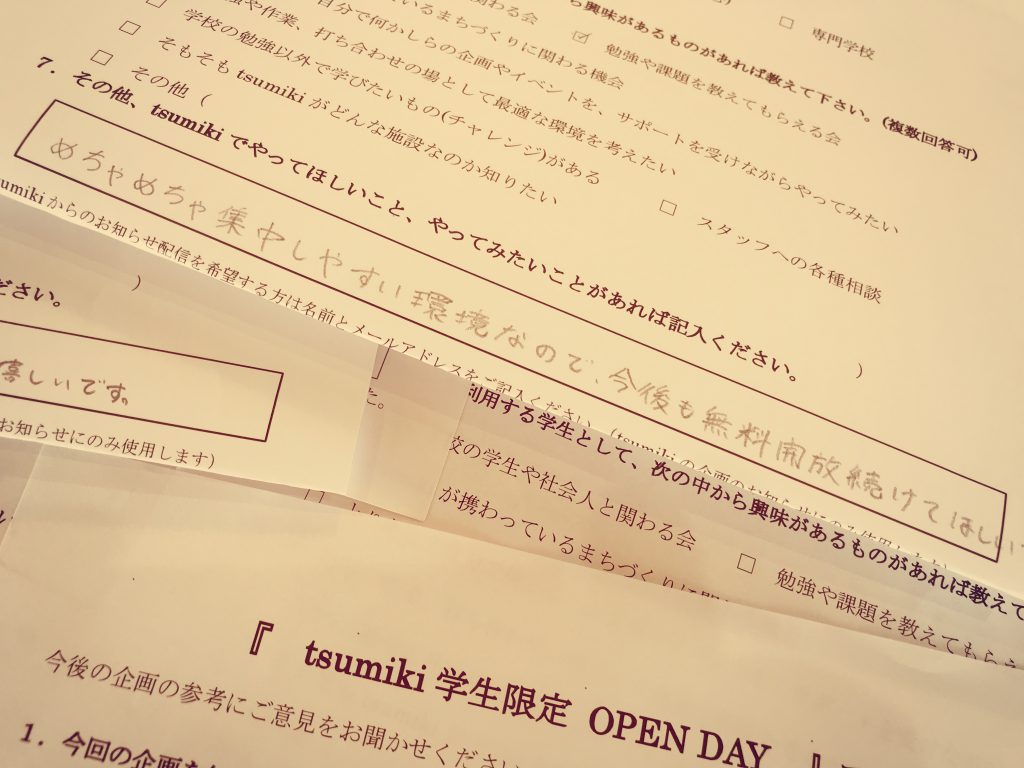 専門学校
ら興味があるものがあれば教えて下さい。(複数回答可)
関わる会
勉強や課題を教えてもらえる会
ているまちづくりに関わる機会
自分で何かしらの企画やイベントを、サポートを受けながらやってみたい
強や作業、打ち合わせの場として最適な環境を考えたい
学校の勉強以外で学びたいもの(チャレンジ)がある
スタッフへの各種相談
そもそも tsumiki がどんな施設なのか知りたい
その他 (
)
7. その他、tsumiki でやってほしいこと、やってみたいことがあれば記入ください。
めちゃめちゃ集中しやすい環境なので、今後も無料開放続けてほしい
sumiki からのお知らせ配信を希望する方は名前とメールアドレスをご記入ください。(tsumiki の企画のお知らせ
)
ださい。
嬉しいです。
お知らせにのみ使用します)
た。
利用する学生として、次の中から興味があるものがあれば教えて
校の学生や社会人と関わる会
勉強や課題を教えてもらえ
が携わっているまちづくりに関
『 tsumiki 学生限定 OPEN DAY 』
今後の企画の参考にご意見をお聞かせくださ
1. 今回の企画を